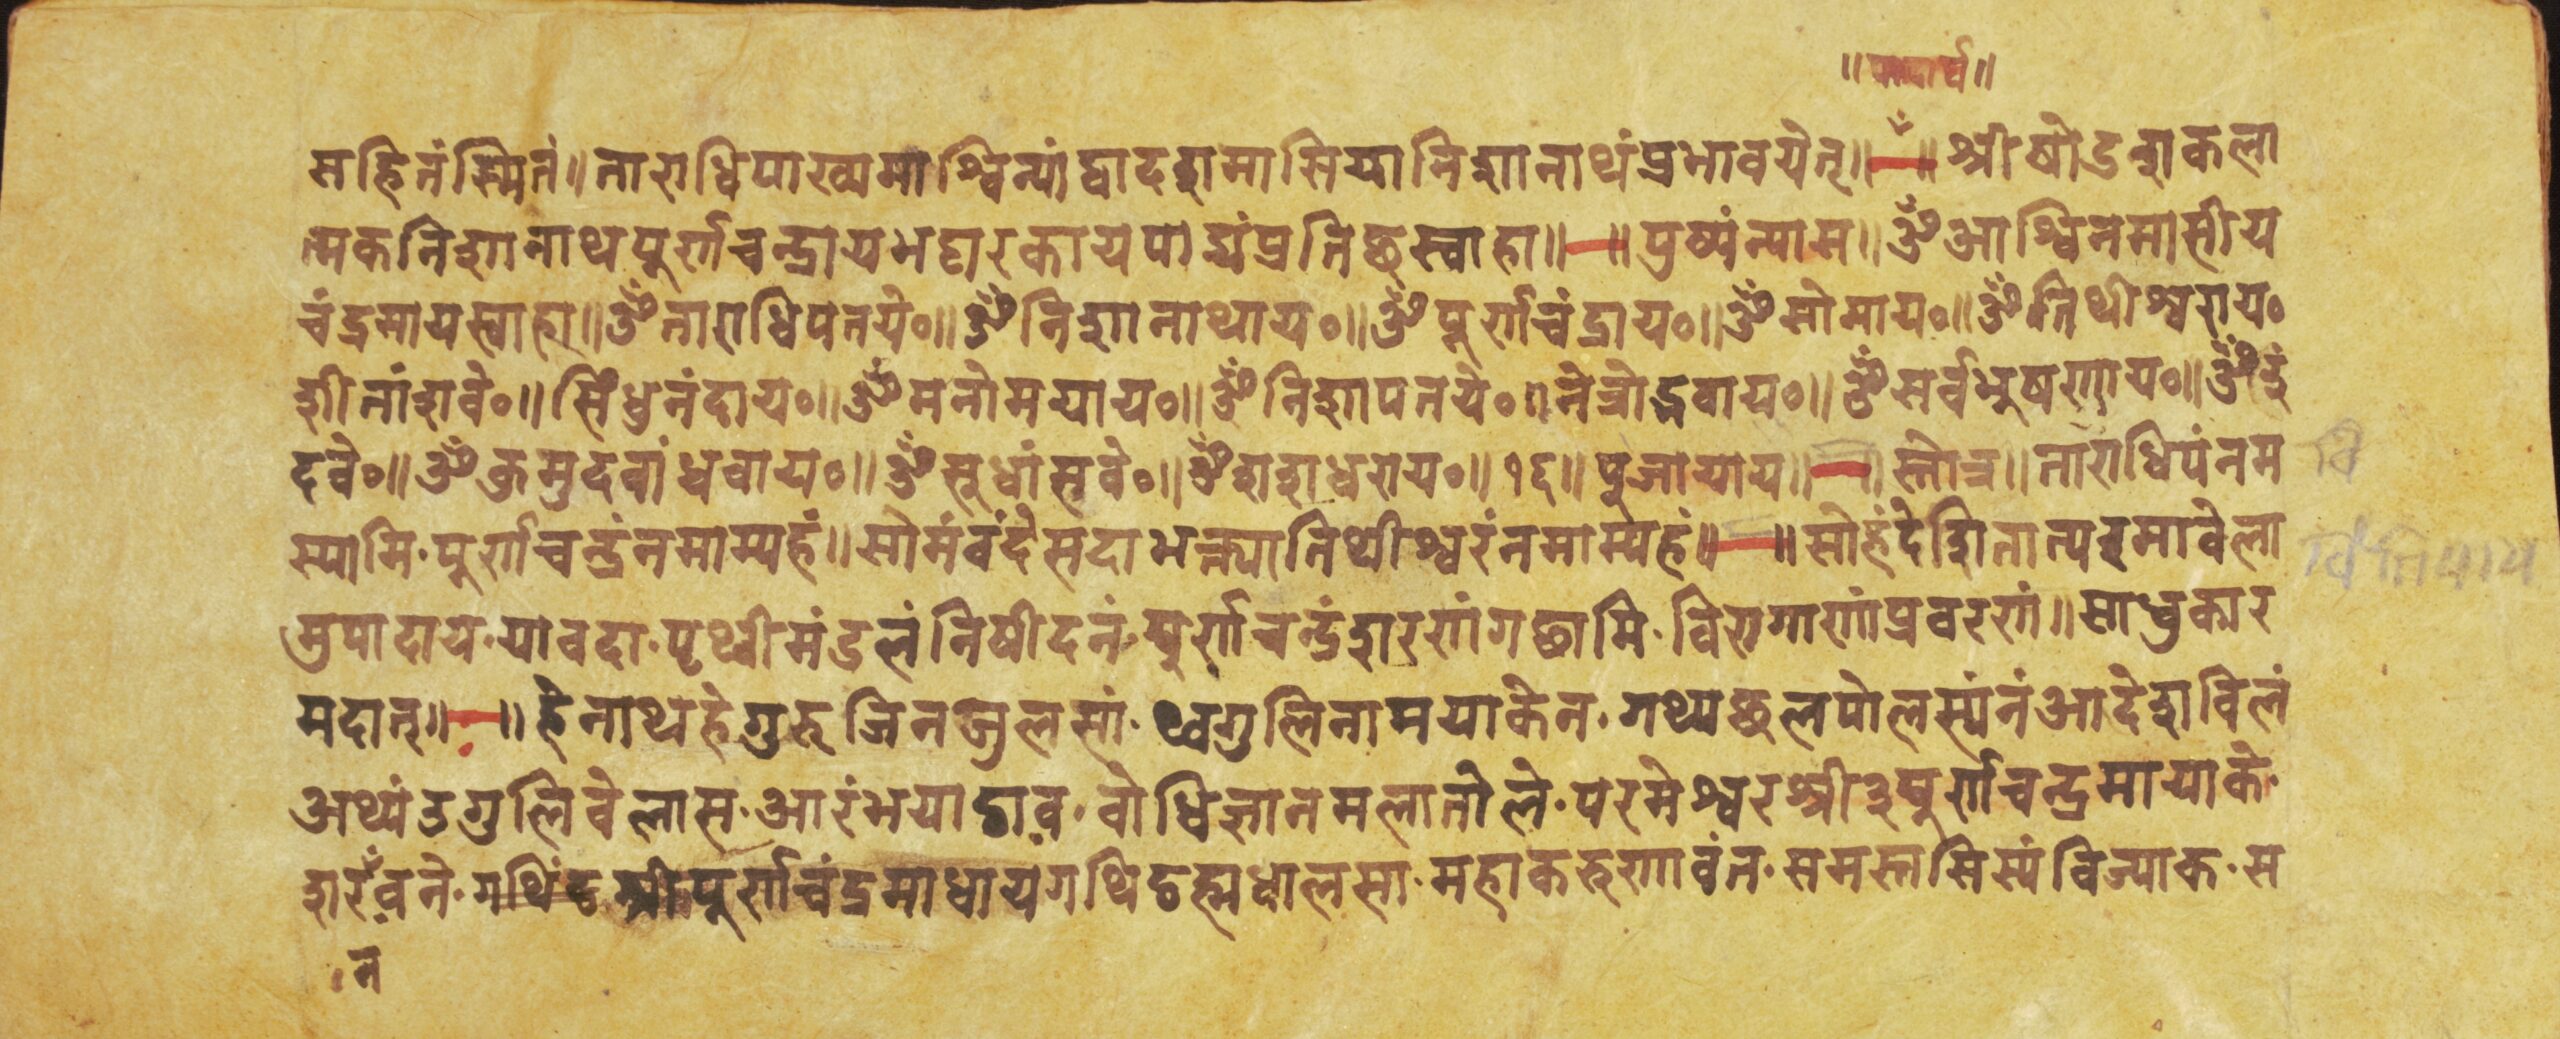 ॥पादार्घ॥
सहितंस्मितं॥ताराधिपाख्यमाश्विन्यांद्वादशमासियानिशानाथंप्रभावयेत्॥—॥श्रीषोडशकला
त्मकनिशानाथपुर्णचन्द्रायभट्टारकायपाद्यंप्रतिछस्वाहा॥—॥पुष्पंन्यास॥ॐआश्विनमासीय
चंद्रमायस्वाहा॥ॐताराधिपतये०॥ॐनिशानाथाय०॥ॐपूर्णचंद्राय०॥ॐसोमाय०॥ॐतिथीश्वराय०
शीतांशवे०॥सिंधुनंदाय०॥ॐमनोमयाय०॥ॐनिशापतये०॥नेत्रोद्भवाय०॥ॐसर्वभुषणाय०॥ॐइं
दवे०॥ॐकुमुदवांधवाय०॥ॐसूधांसवे०॥ॐशशधराय०॥१६॥पुजायाय॥—॥स्तोत्र॥ताराधिपंनम
स्यामि·पुर्णचन्द्रंनमाम्यहं॥सोमंवंदेसदाभक्त्यातिथीश्वरंनमाम्यहं॥—॥सोहंदेशितात्परमावेला
मुपादाय·यावदा·पृथ्वीमंडलंनिषीदनं·पुर्णचन्द्रंशरणंगछामि·विरागाणांप्रवरणं॥साधुकार
मदात्॥—॥हेनाथहेगुरुजिनञ्जलसां·थ्वगुलिनामयाकेन·गथ्यछलपोलस्यंनंआदेशविलं
अथ्यंउगुलिवेलास·आरंभयाङाव·वोधिज्ञानमलातोले·परमेश्वरश्री३पुर्णचन्द्रमायाके·
शरँवने·गथिंह्मश्रीपुर्णचंद्रमाधायंगथिंह्मह्मधालसा·महाकरुणावंत·समस्तसिस्यंविज्याक·स
।न
वि